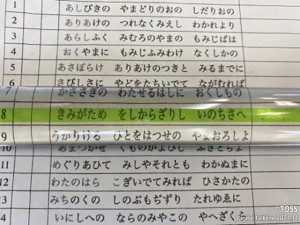 1 あしびきの やまどりのおの しだりおの
2 ありあけの つれなくみえし わかれより
3 あらしふく みむろのやまの もみじばは
4 おくやまに もみじふみわけ なくしかの
5 あさぼらけ ありあけのつきと みるまでに
6 さびしさに やどをたちいでて ながむれば
7 かささぎの わたせるはしに おくしもの
8 きみがため をしからざりし いのちさへ
9 うかりける ひとをはつせの やまおろしよ
10 あまつかぜ くものかよひじ
11 めぐりあひて みしやそれとも わかぬまに
12 わたのはら こぎいでてみれば ひさかたの
13 みちのくの しのぶもぢずり たれゆゑに
14 いにしへの ならのみやこの やへざくら
TOSS